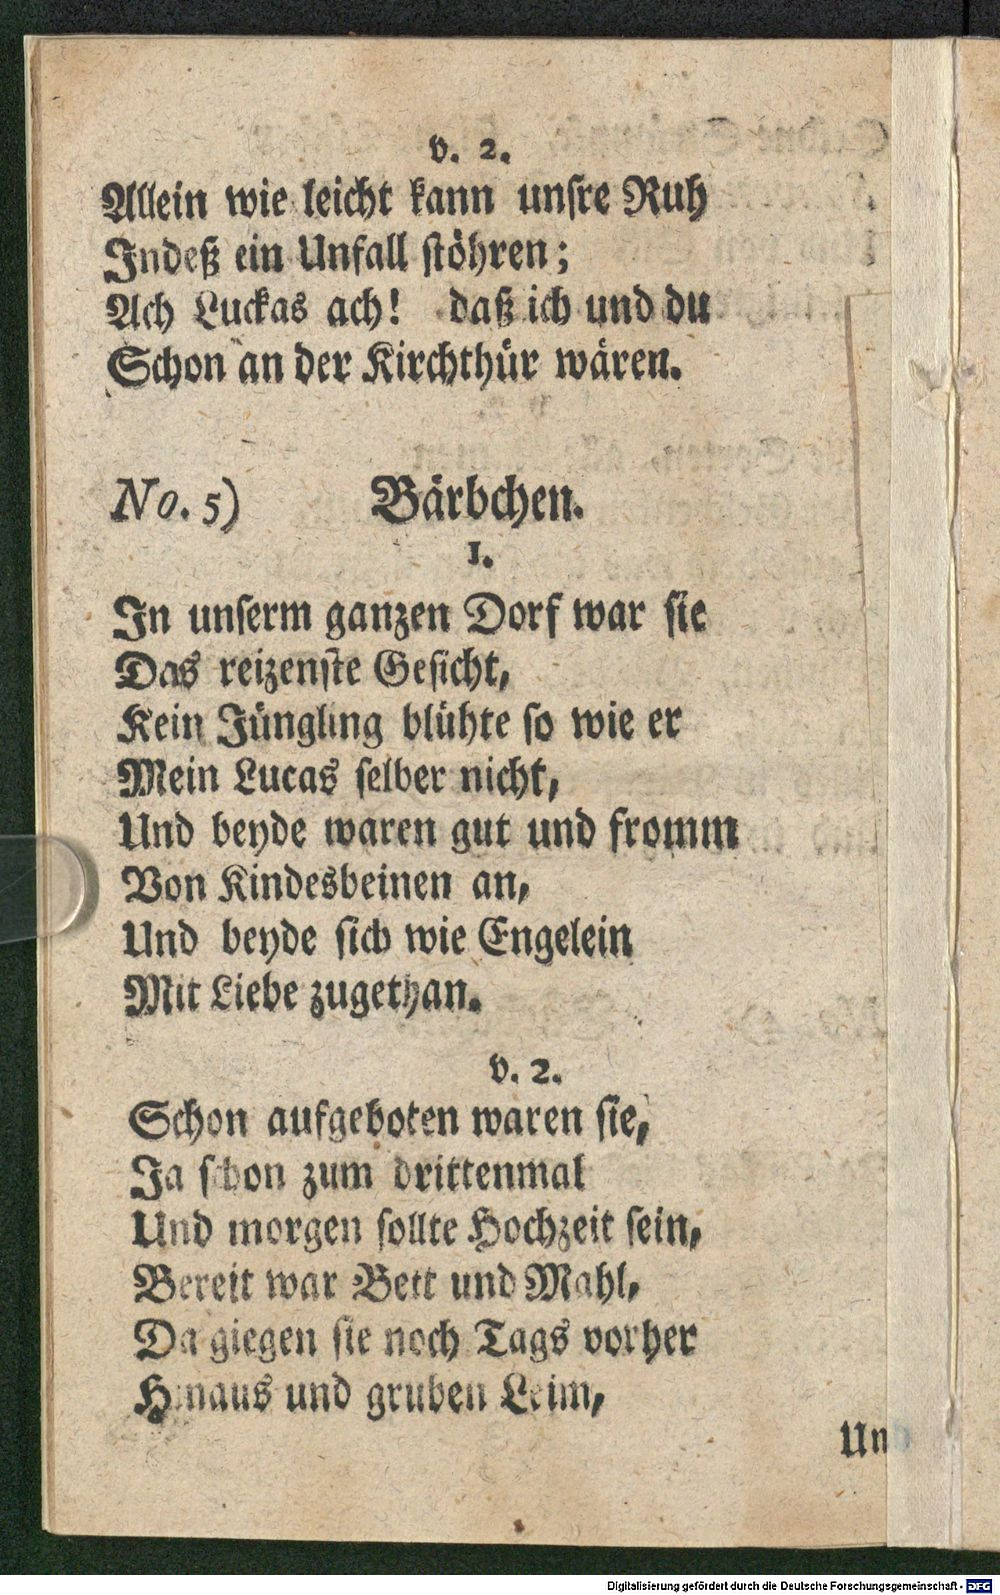 v. 2.
Allein wie leicht kann unsre Ruh
Indeß ein Unfall stöhren;
Ach Luckas ach! daß ich und du
Schon an der Kirchthür wären.
No. 5) Bärbchen.
1.
In unserm ganzen Dorf war sie
Das reizenste Gesicht,
Kein Jüngling blühte so wie er
Mein Lucas selber nicht,
Und beyde waren gut und fromm
Von Kindesbeinen an,
Und beyde sich wie Engelein
Mit Liebe zugethan.
v. 2.
Schon aufgeboten waren sie,
Ja schon zum drittenmal
Und morgen sollte Hochzeit sein,
Bereit war Bett und Mahl,
Da giegen sie noch Tags vorher
Hinaus und gruben Leim,
Und
Digitalisierung gefördert durch die Deutsche Forschungsgemeinschaft - DFG